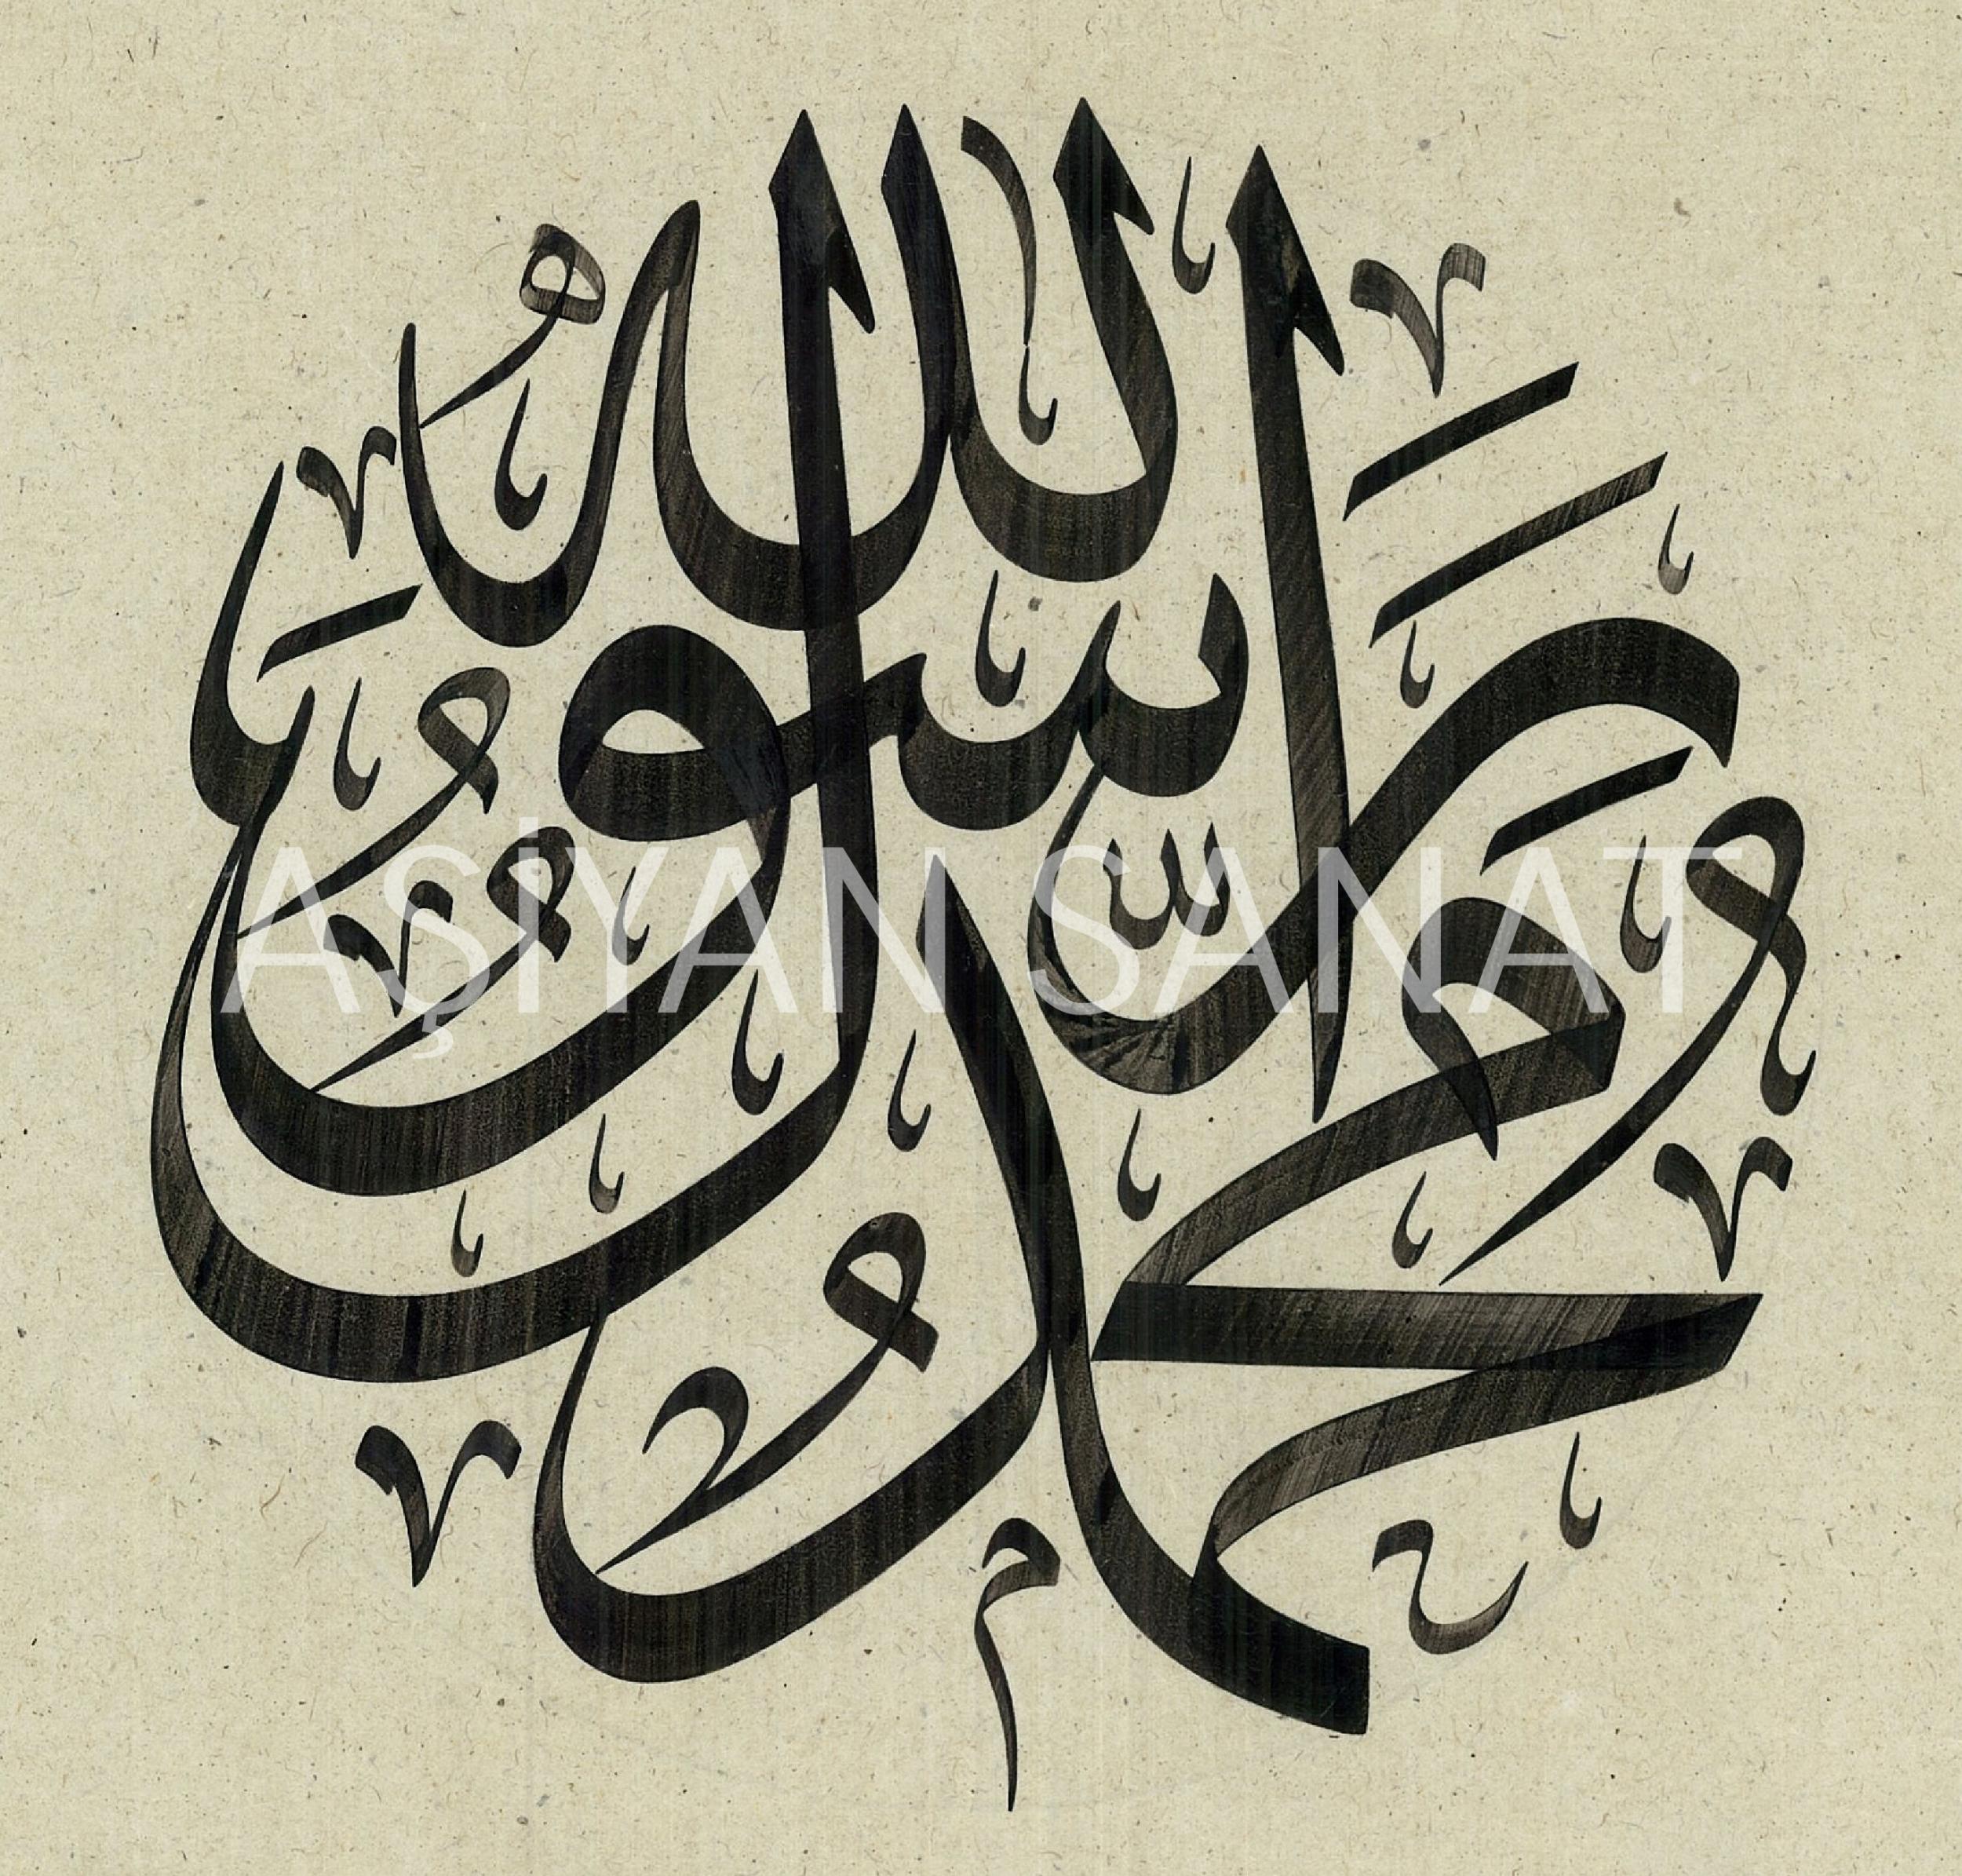 محمد رسول الله
AŞİYAN SANAT